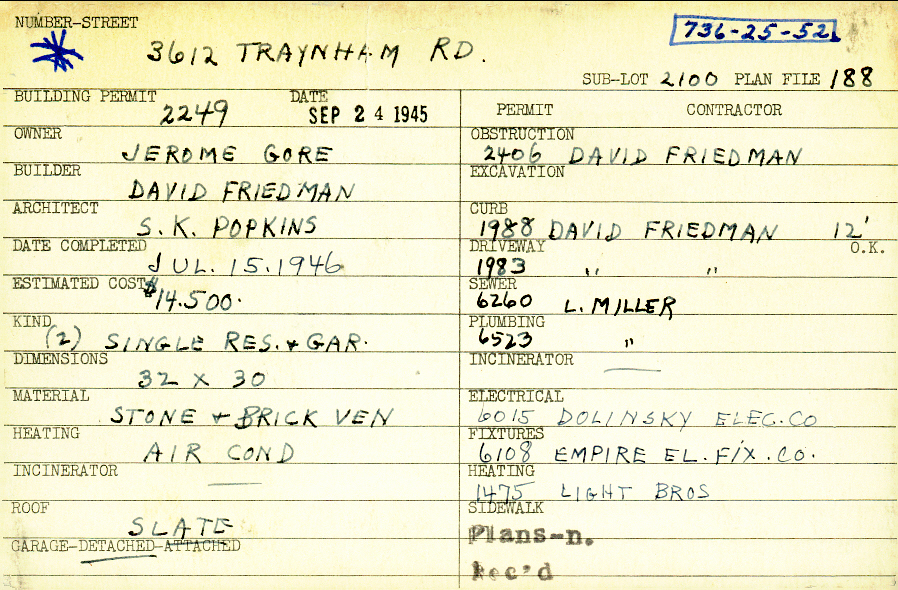 NUMBER-STREET
736-25-52
3612 TRAYNHAM RD.
SUB-LOT 2100 PLAN FILE 188
BUILDING PERMIT DATE
2249 SEP 24 1945
OWNER
JEROME GORE
BUILDER
DAVID FRIEDMAN
ARCHITECT
S. K. POPKINS
DATE COMPLETED
JUL. 15. 1946
ESTIMATED COST
$14.500.
KIND
(2) SINGLE RES. + GAR.
DIMENSIONS
32 X 30
MATERIAL
STONE + BRICK VEN
HEATING
AIR COND
INCINERATOR
ROOF
SLATE
GARAGE-DETACHED-ATTACHED
PERMIT CONTRACTOR
OBSTRUCTION
2406 DAVID FRIEDMAN
EXCAVATION
CURB
1988 DAVID FRIEDMAN 12'
DRIVEWAY O.K.
1983 " "
SEWER
6260 L. MILLER
PLUMBING
6523 "
INCINERATOR
ELECTRICAL
6015 DOLINSKY ELEC. CO
FIXTURES
6108 EMPIRE EL. FIX. CO.
HEATING
1475 LIGHT BROS
SIDEWALK
Plans-n.
Rec'd